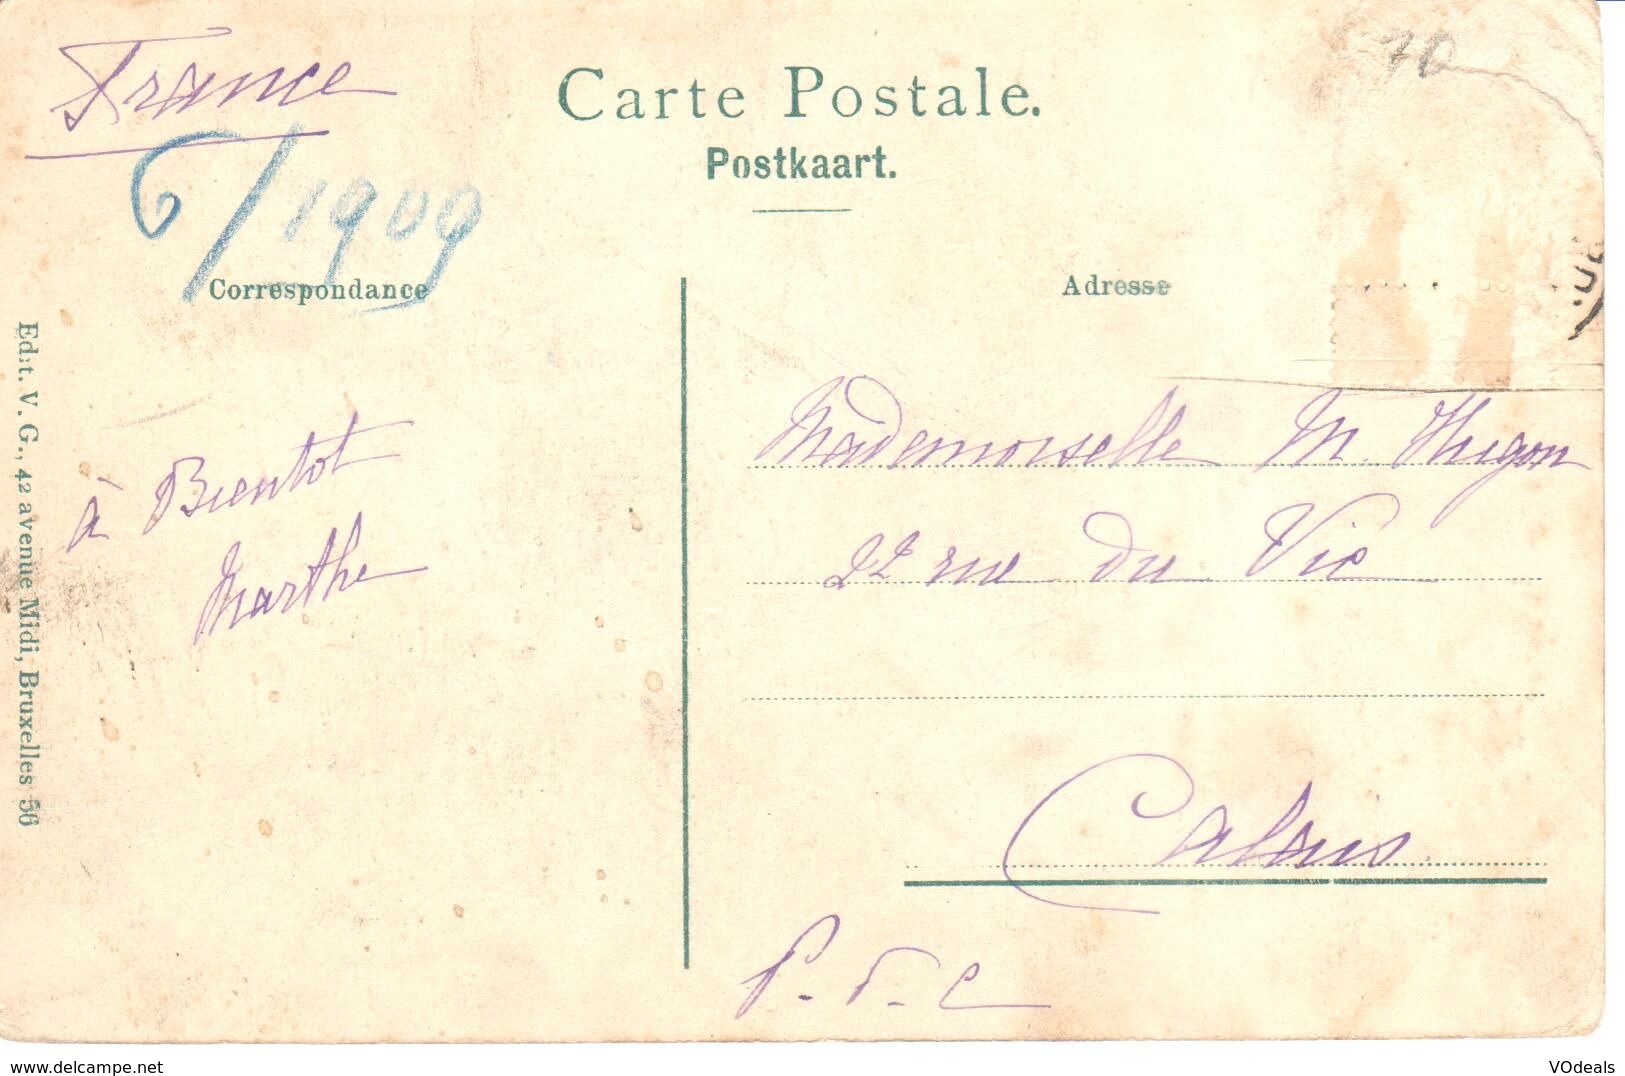 France
10
Carte Postale.
Postkaart.
6/1909
Correspondance
Adresse
Edit. V. G., 42 avenue Midi, Bruxelles 56
à Bientot
Marthe
Mademoiselle M. Hugon
22 rue du Vic
Calais
P. d. C
www.delcampe.net
VOdeals